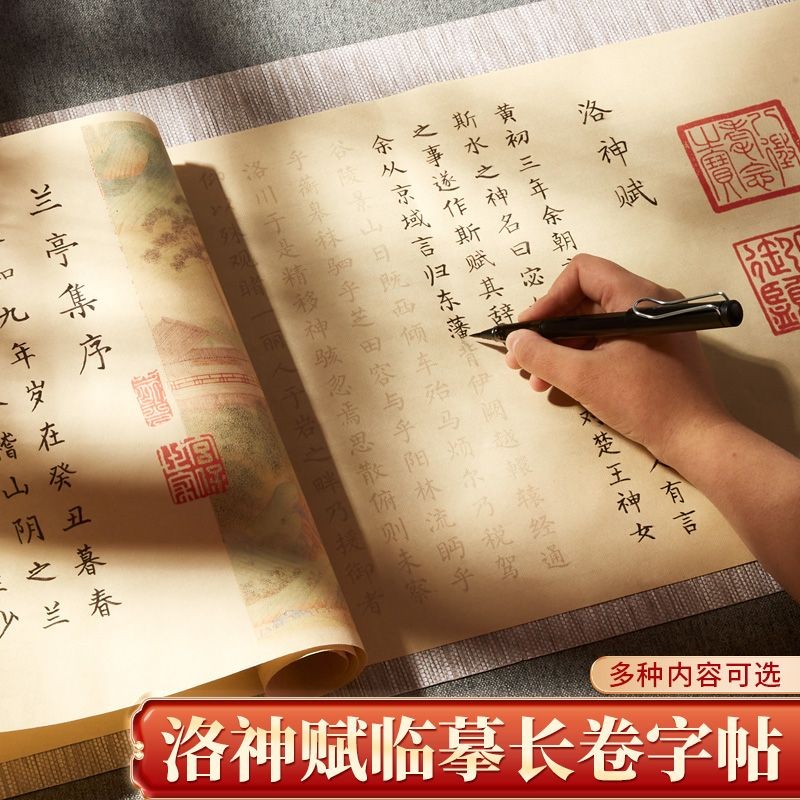 洛神赋
黄初三年余朝
人有言
斯水之神名曰宓
对楚王神女
之事遂作斯赋其辞
余从京域言归东藩背伊阙越轘辕经通
谷陵景山日既西倾车殆马烦尔乃税驾
乎蘅皋秣驷乎芝田容与乎阳林流眄乎
洛川于是精移神骇忽焉思散俯则未察
仰以殊观睹一丽人于岩之畔乃援御者
兰亭集序
和九年岁在癸丑暮春
稽山阴之兰
少
多种内容可选
洛神赋临摹长卷字帖